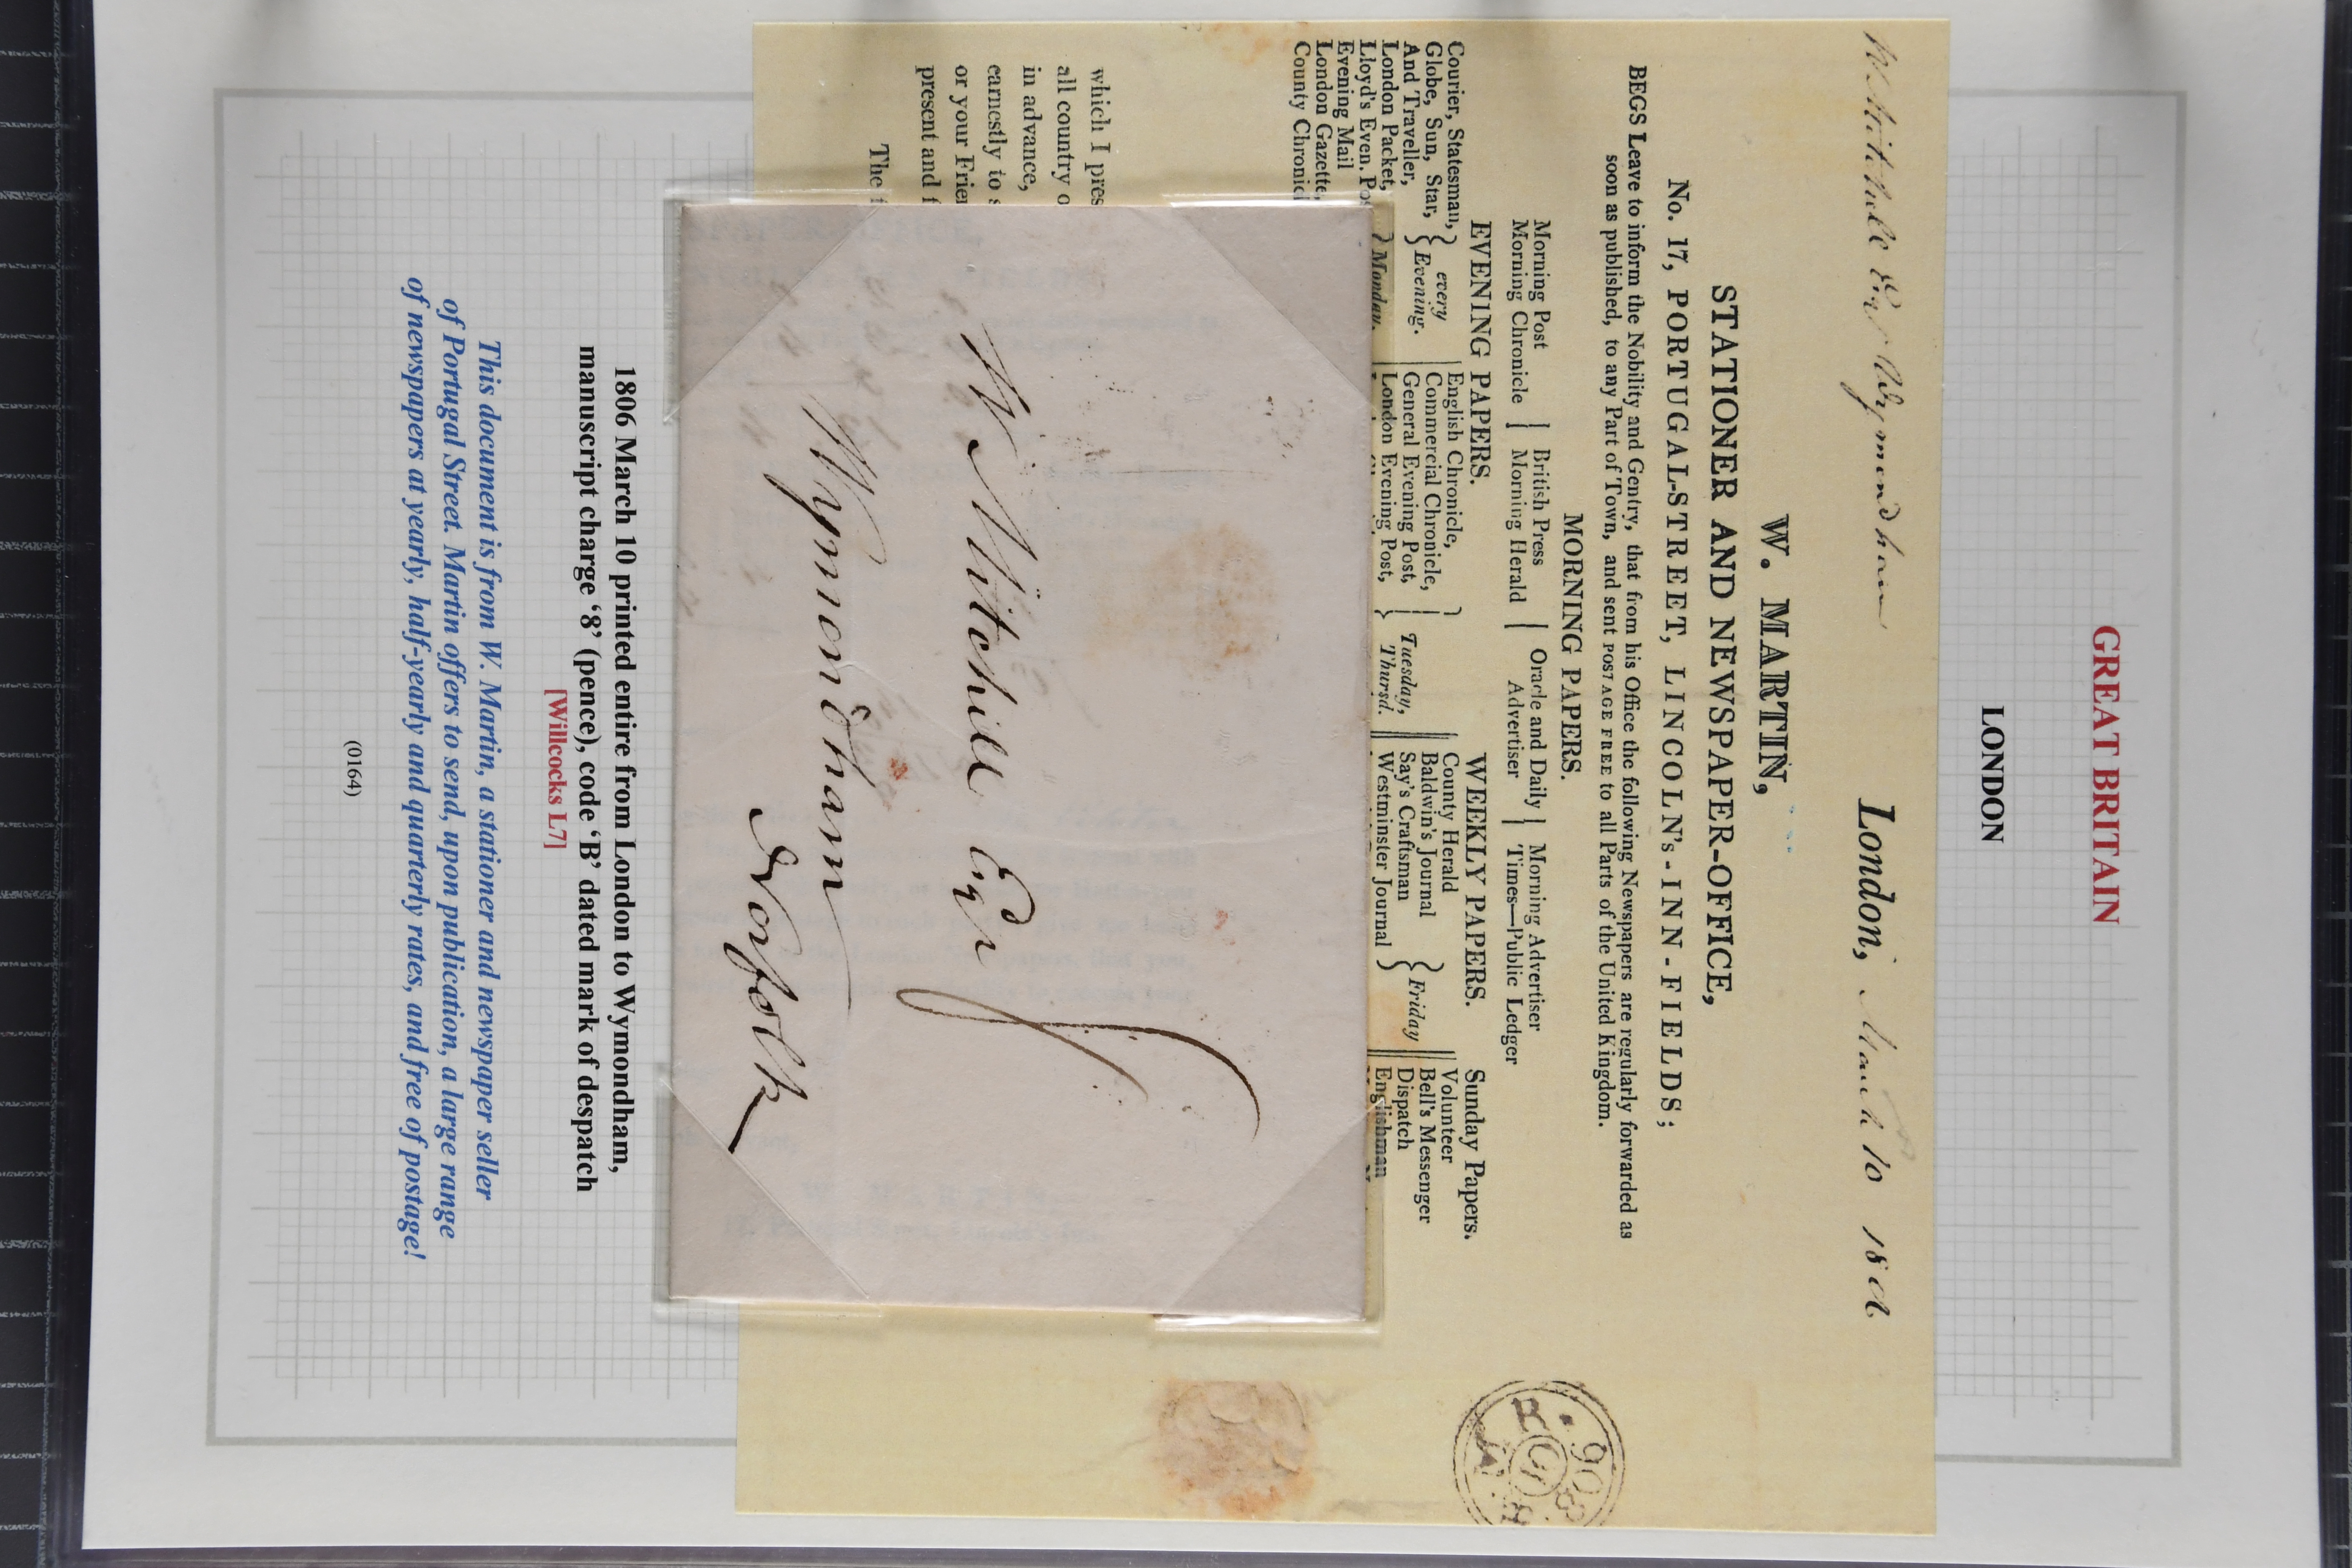 GREAT BRITAIN
LONDON
W Mitchell Esqr Wymondham
London, March 10 180
W. MARTIN,
STATIONER AND NEWSPAPER-OFFICE,
No. 17, PORTUGAL-STREET, LINCOLN's-INN-FIELDS;
BEGS Leave to inform the Nobility and Gentry, that from his Office the following Newspapers are regularly forwarded as
soon as published, to any Part of Town, and sent POSTAGE FREE to all Parts of the United Kingdom.
MORNING PAPERS.
Morning Post | British Press | Oracle and Daily | Morning Advertiser
Morning Chronicle | Morning Herald | Advertiser | Times—Public Ledger
EVENING PAPERS.
Courier, Statesman,
Globe, Sun, Star,
And Traveller,
every
Evening.
London Packet,
Lloyd's Even. Pos
Evening Mail
London Gazette,
County Chronicl
Monday,
English Chronicle,
Commercial Chronicle,
General Evening Post,
London Evening Post,
Tuesday,
Thursd.
WEEKLY PAPERS.
County Herald
Baldwin's Journal
Say's Craftsman
Westminster Journal
Friday
Sunday Papers.
Volunteer
Bell's Messenger
Dispatch
Englishman
which I pres
all country o
in advance,
earnestly to s
or your Frien
present and f
The f
W Mitchell Esqr
Wymondham
Norfolk
1806 March 10 printed entire from London to Wymondham,
manuscript charge ‘8’ (pence), code ‘B’ dated mark of despatch
[Willcocks L7]
This document is from W. Martin, a stationer and newspaper seller
of Portugal Street. Martin offers to send, upon publication, a large range
of newspapers at yearly, half-yearly and quarterly rates, and free of postage!
(0164)